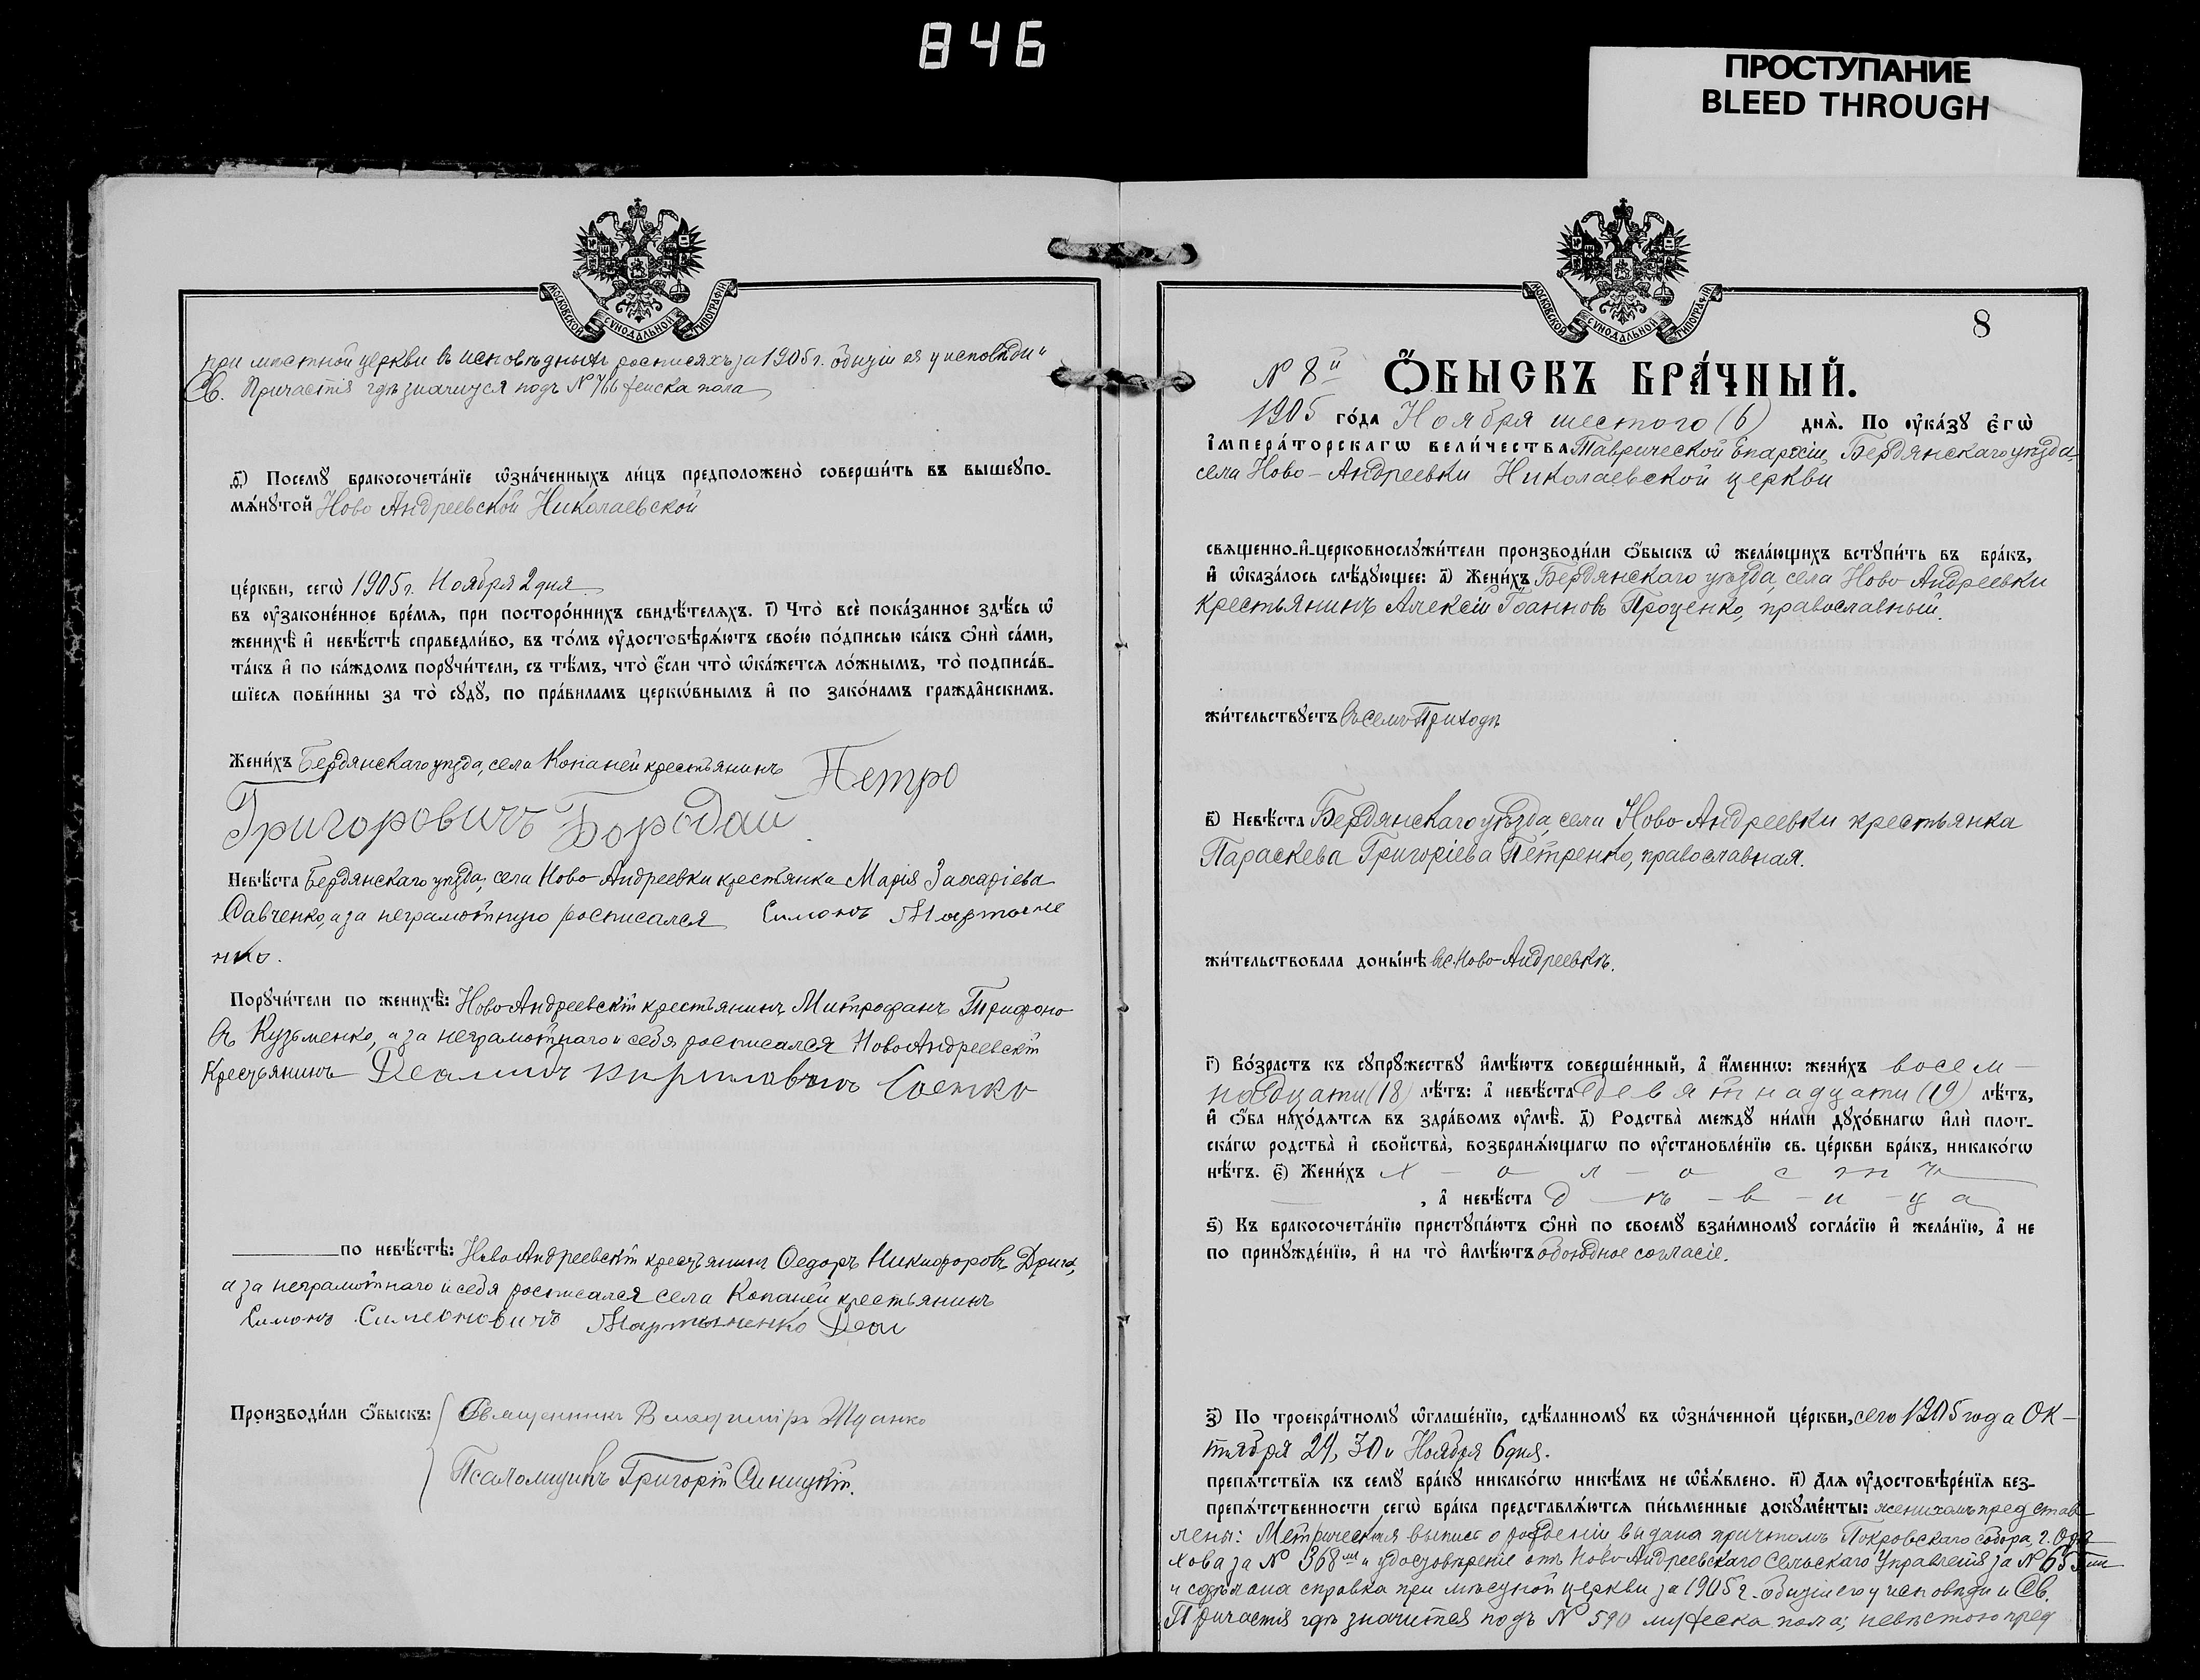 846
ПРОСТУПАНИЕ
BLEED THROUGH
МОСКОВСКОЙ СѴНОДАЛЬНОЙ ТИПОГРАФІИ
при местной церкви въ исповѣдныхъ росписяхъ за 1905 г. бытіи ея у исповѣди и
Св. Причастія гдѣ значится подъ № 766 женска пола
Ѳ҃) Посемꙋ бракосочета́нїе ѡ҆зна́ченныхъ ли́цъ предположено̀ соверши́ть въ вышеꙋпо-
мѧ́нꙋтой Ново Андреевской Николаевской
це́ркви, сегѡ̀ 1905 г. Ноября 2 дня
въ ᲂу҆законе́нное вре́мѧ, при посторо́ннихъ свидѣ́телѧхъ. І҃) Что̀ всѐ пока́занное здѣ́сь ѡ҆
женихѣ̀ и҆ невѣ́стѣ справедли́во, въ то́мъ ᲂу҆достовѣрѧ́ютъ свое́ю по́дписью ка́къ ѻ҆нѝ са́ми,
та́къ и҆ по ка́ждомъ порꙋчи́тели, съ тѣ́мъ, что̀ є҆́сли что̀ ѡ҆ка́жетсѧ ло́жнымъ, то̀ подписа́в-
шїесѧ пови́нны за то̀ сꙋдꙋ̀, по пра́виламъ церкѡ́внымъ и҆ по зако́намъ гражда̑нскимъ.
Жени́хъ Бердянскаго уѣзда, села Копаней крестьянинъ Петро
Григоровичъ Бородай
Невѣ́ста Бердянскаго уѣзда, села Ново Андреевки крестянка Марія Захаріева
Савченко, а за неграмотную росписался Симонъ Мартыне
нко.
Порꙋчи́тели по женихѣ̀: Ново Андреевскій крестьянинъ Митрофанъ Трифоно
въ Кузьменко, а за неграмотнаго и себя росписался Ново Андреевскій
Крестьянинъ Кириловичъ
по невѣ́стѣ: Ново Андреевскій крестьянинъ Ѳедоръ Никифоровъ Дрига,
а за неграмотнаго и себя росписался села Копаней крестьянинъ
Симонъ Симеоновичъ Мартыненко
Производи́ли ѻ҆́быскъ: Священникъ Владиміръ
Псаломщикъ Григорій Синицкій.
МОСКОВСКОЙ СѴНОДАЛЬНОЙ ТИПОГРАФІИ
8
№ 8й ѺБЫСКЪ БРА́ЧНЫЙ.
1905 го́да Ноября шестого (6) днѧ̀. По ᲂу҆ка́зꙋ є҆гѡ̀
і҆мпера́торскагѡ вели́чества Таврической Епархіи, Бердянскаго уѣзда,
села Ново-Андреевки Николаевской церкви
свѧщенно-и҆-церковнослꙋжи́тели производи́ли ѻ҆́быскъ ѡ҆ жела́ющихъ встꙋпи́ть въ бра́къ,
и҆ ѡ҆каза́лось слѣ́дꙋющее: а҃) Жени́хъ Бердянскаго уѣзда, села Ново Андреевки
крестьянинъ Алексій Іоанновъ Проценко, православный.
жи́тельствꙋетъ въ семъ Приходѣ
в҃) Невѣ́ста Бердянскаго уѣзда, села Ново Андреевки крестьянка
Параскева Григоріева Петренко, православная.
жи́тельствовала доны́нѣ въ с. Ново-Андреевкѣ.
г҃) Во́зрастъ къ сꙋпрꙋ́жествꙋ и҆мѣ́ютъ соверше́нный, а҆ и҆́меннѡ: жени́хъ восем-
надцати (18) лѣ́тъ: а҆ невѣ́ста девятнадцати (19) лѣ́тъ,
и҆ ѻ҆́ба нахо́дѧтсѧ въ здра́вомъ ᲂу҆мѣ̀. д҃) Родства̀ междꙋ ни́ми дꙋхо́внагѡ и҆лѝ плот-
ска́гѡ родства̀ и҆ свойства̀, возбранѧ́ющагѡ по ᲂу҆становле́нїю св. це́ркви бра́къ, никако́гѡ
нѣ́тъ. є҃) Жени́хъ х - о - л - о с т ъ
, а҆ невѣ́ста д - ѣ - в - и - ц а
ѕ҃) Къ бракосочета́нїю пристꙋпа́ютъ ѻ҆нѝ по своемꙋ̀ взаи́мномꙋ согла́сїю и҆ жела́нїю, а҆ не
по принꙋжде́нїю, и҆ на то̀ и҆мѣ́ютъ обоюдное согласіе.
з҃) По троекра́тномꙋ ѡ҆глаше́нїю, сдѣ́ланномꙋ въ ѡ҆зна́ченной це́ркви, сего 1905 года Ок-
тября 24, 30 и Ноября 6 дня.
препѧ́тствїѧ къ семꙋ̀ бра́кꙋ никако́гѡ никѣ́мъ не ѡ҆б̾ѧ́влено. и҃) Длѧ ᲂу҆достовѣре́нїѧ без-
препѧ́тственности сегѡ̀ бра́ка представлѧ́ютсѧ пи́сьменные докꙋме́нты: женихомъ представ-
лены: Метрическая выпись о рожденіи выдана причтомъ Покровскаго собора, г. Орѣ
хова за № 368м и удостовѣреніе отъ Ново Андреевскаго Сельскаго Управленія за №
и сдѣлана справка при мѣстной церкви за 1905 г. бытіи его у исповѣди и Св.
Причастія гдѣ значится подъ № 590 мужеска пола; невѣстою пред